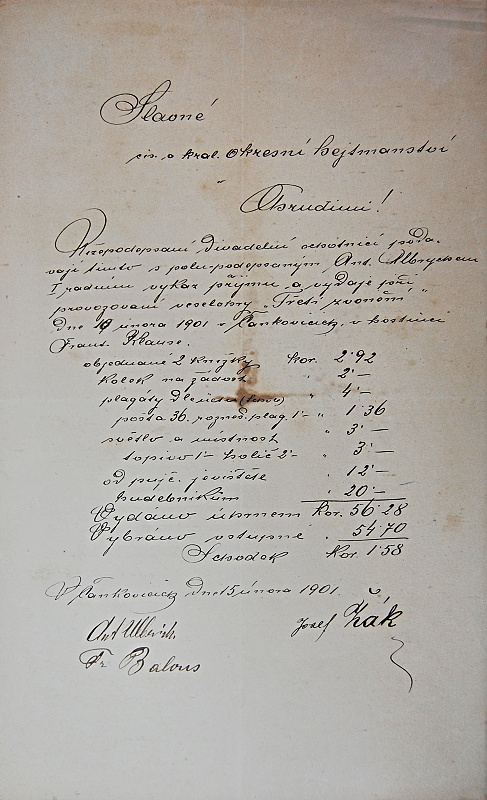 Slavné
cis. a král. okresní hejtmanství
v
Chrudimi!
Nížepodepsaní divadelní ochotníci podá-
vají tímto s polu-podepsaným Ant. Ulbrychem
řadním výkaz příjmu a výdaje při
provozování veselohry „Třetí zvonění"
dne 10 února 1901 v Vlankovicích, v hostinci
Frant. Klause.
objednané 2 knížky kor. 2·92
kolek na žádost " 2·—
plagáty Dleucha " 4·—
pošta 36. rozneš. plag. 1·— " 1·36
světlo a místnost " 3·—
topivo 1·— holič 2·— " 3·—
od půjč. jeviště " 12·—
hudebníkům " 20·—
Vydáno úhrnem Kor. 56·28
Vybráno vstupné " 54·70
Schodek Kor. 1·58
dne 15 února 1901.
Ant Ulbrich Josef Žák
Fr. Balous